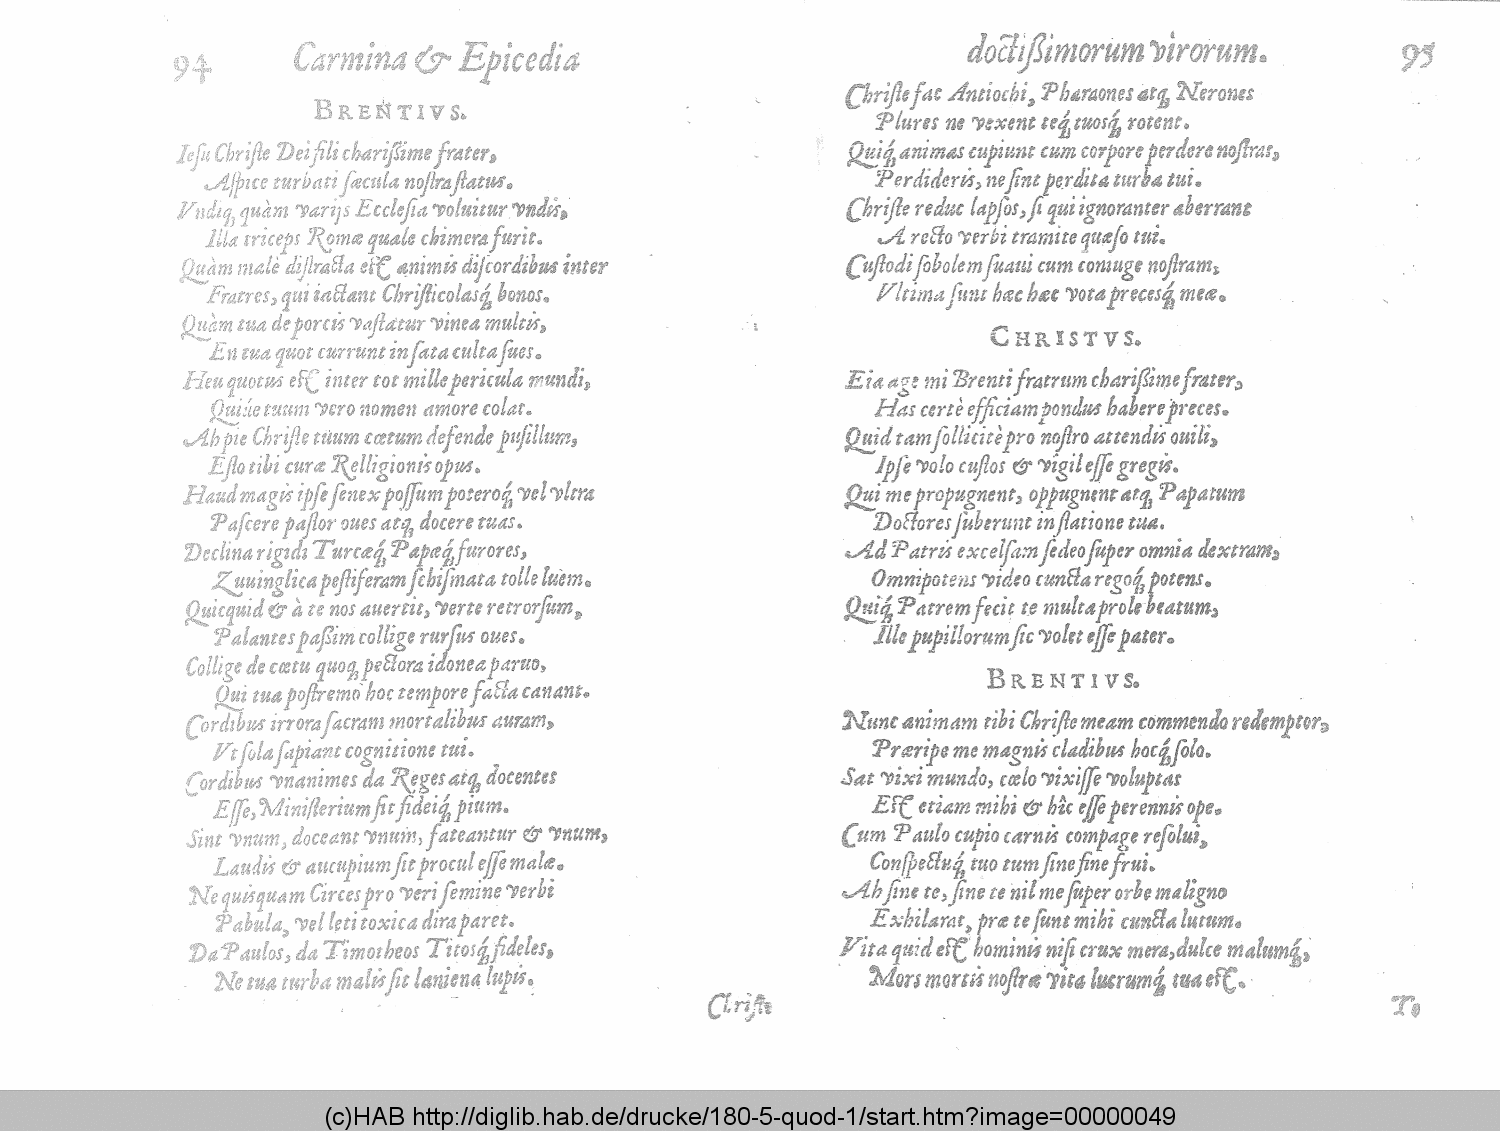 94 Carmina & Epicedia
BRENTIVS.
Iesu Christe Dei fili charißime frater,
Aspice turbati sæcula nostra status.
Vndiq; quàm varijs Ecclesia voluitur vndis,
Illa triceps Romæ quale chimera furit.
Quàm malè distracta est animis discordibus inter
Fratres, qui iactant Christicolasq́; bonos.
Quàm tua de porcis vastatur vinea multis,
En tua quot currunt in sata culta sues.
Heu quotus est inter tot mille pericula mundi,
Qui te tuum vero nomen amore colat.
Ah pie Christe tuum cœtum defende pusillum,
Esto tibi curæ Relligionis opus.
Haud magis ipse senex possum poteroq́; vel vltra
Pascere pastor oues atq; docere tuas.
Declina rigidi Turcæq́; Papæq́; furores,
Zuuinglica pestiferam schismata tolle luem.
Quicquid & à te nos auertit, verte retrorsum,
Palantes paßim collige rursus oues.
Collige de cœtu quoq; pectora idonea paruo,
Qui tua postremo hoc tempore facta canant.
Cordibus irrora sacram mortalibus auram,
Vt sola sapiant cognitione tui.
Cordibus vnanimes da Reges atq; docentes
Esse, Ministerium sit fideiq́; pium.
Sint vnum, doceant vnum, fateantur & vnum,
Laudis & aucupium sit procul esse malæ.
Ne quisquam Circes pro veri semine verbi
Pabula, vel leti toxica dira paret.
Da Paulos, da Timotheos Titosq́; fideles,
Ne tua turba malis sit laniena lupis.
Christe
doctißimorum virorum. 95
Christe fac Antiochi, Pharaones atq; Nerones
Plures ne vexent teq́; tuosq́; rotent.
Quiq́; animas cupiunt cum corpore perdere nostras,
Perdideris, ne sint perdita turba tui.
Christe reduc lapsos, si qui ignoranter aberrant
A recto verbi tramite quæso tui.
Custodi sobolem suaui cum coniuge nostram,
Vltima sunt hæc hæc vota precesq́; meæ.
CHRISTVS.
Eia age mi Brenti fratrum charißime frater,
Has certè efficiam pondus habere preces.
Quid tam sollicitè pro nostro attendis ouili,
Ipse volo custos & vigil esse gregis.
Qui me propugnent, oppugnent atq; Papatum
Doctores suberunt in statione tua.
Ad Patris excelsam sedeo super omnia dextram,
Omnipotens video cuncta regoq́; potens.
Quiq́; Patrem fecit te multa prole beatum,
Ille pupillorum sic volet esse pater.
BRENTIVS.
Nunc animam tibi Christe meam commendo redemptor,
Præripe me magnis cladibus hocq́; solo.
Sat vixi mundo, cœlo vixisse voluptas
Est etiam mihi & hîc esse perennis ope.
Cum Paulo cupio carnis compage resolui,
Conspectuq́; tuo tum sine fine frui.
Ah sine te, sine te nil me super orbe maligno
Exhilarat, præ te sunt mihi cuncta lutum.
Vita quid est hominis nisi crux mera, dulce malumq́;,
Mors mortis nostræ vita lucrumq́; tua est.
Te
(c)HAB http://diglib.hab.de/drucke/180-5-quod-1/start.htm?image=00000049